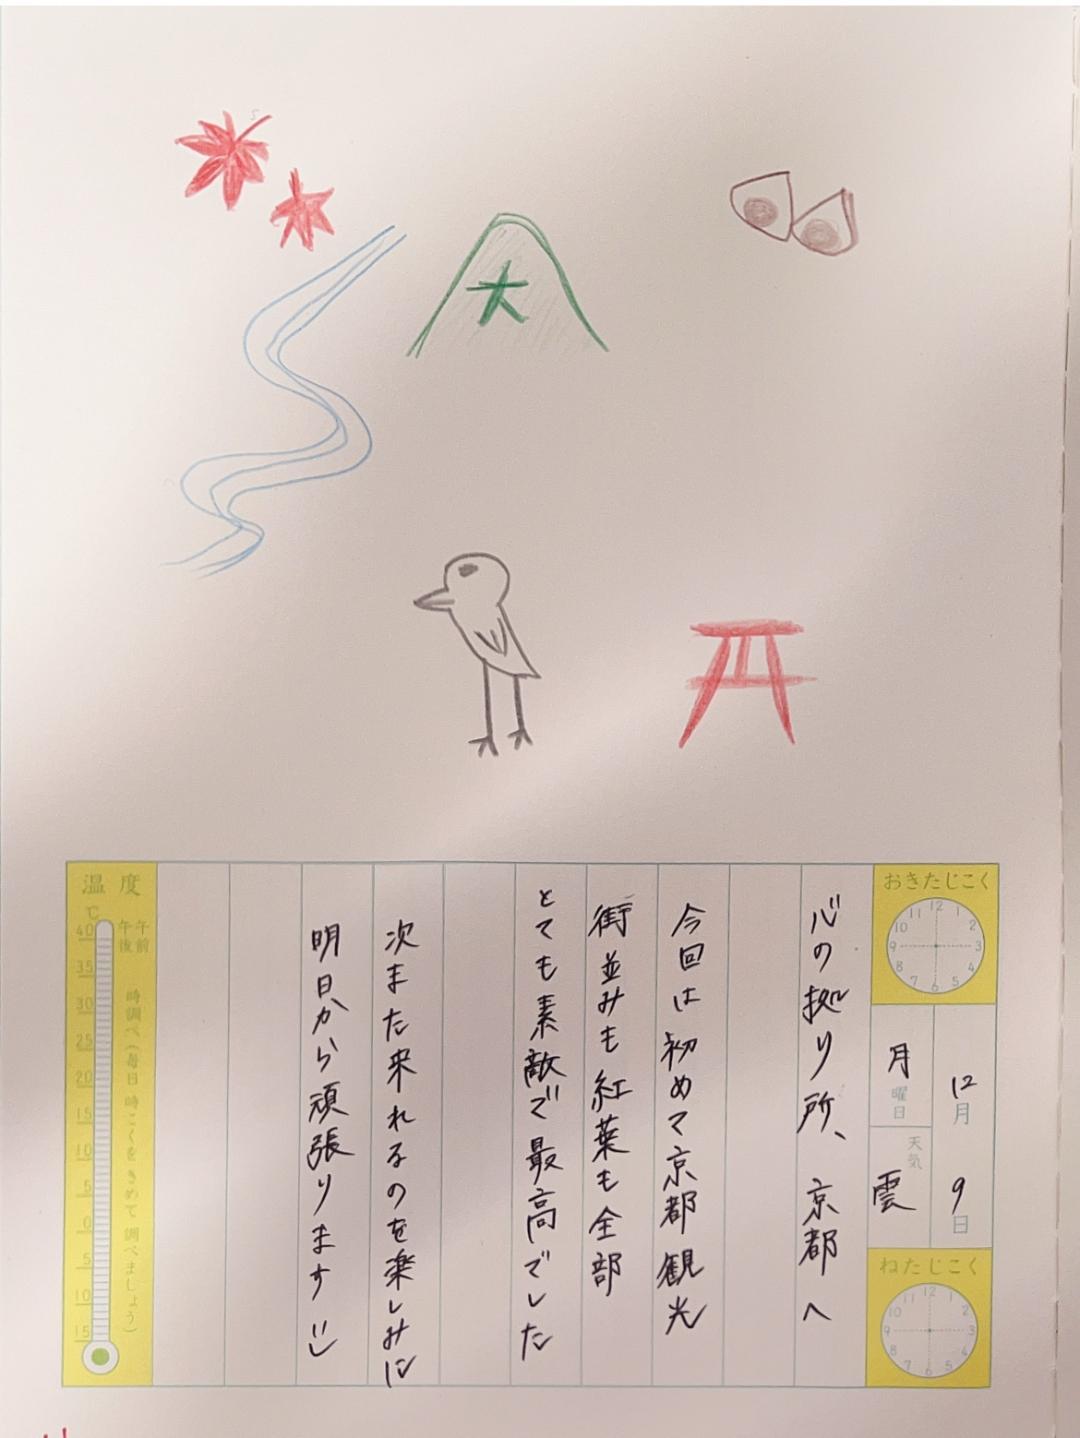 大
おきたじこく
12 1 2 3 4 5 6 7 8 9 10 11
12月9日
月曜日
天気
雲
ねたじこく
12 1 2 3 4 5 6 7 8 9 10 11
心の拠り所、京都へ
今回は初めて京都観光
街並みも紅葉も全部
とても素敵で最高でした
次また来れるのを楽しみに
明日から頑張ります
温度
℃
午前
午後
時調べ(毎日時こくをきめて調べましょう)
40
35
30
25
20
15
10
5
0
5
10
15